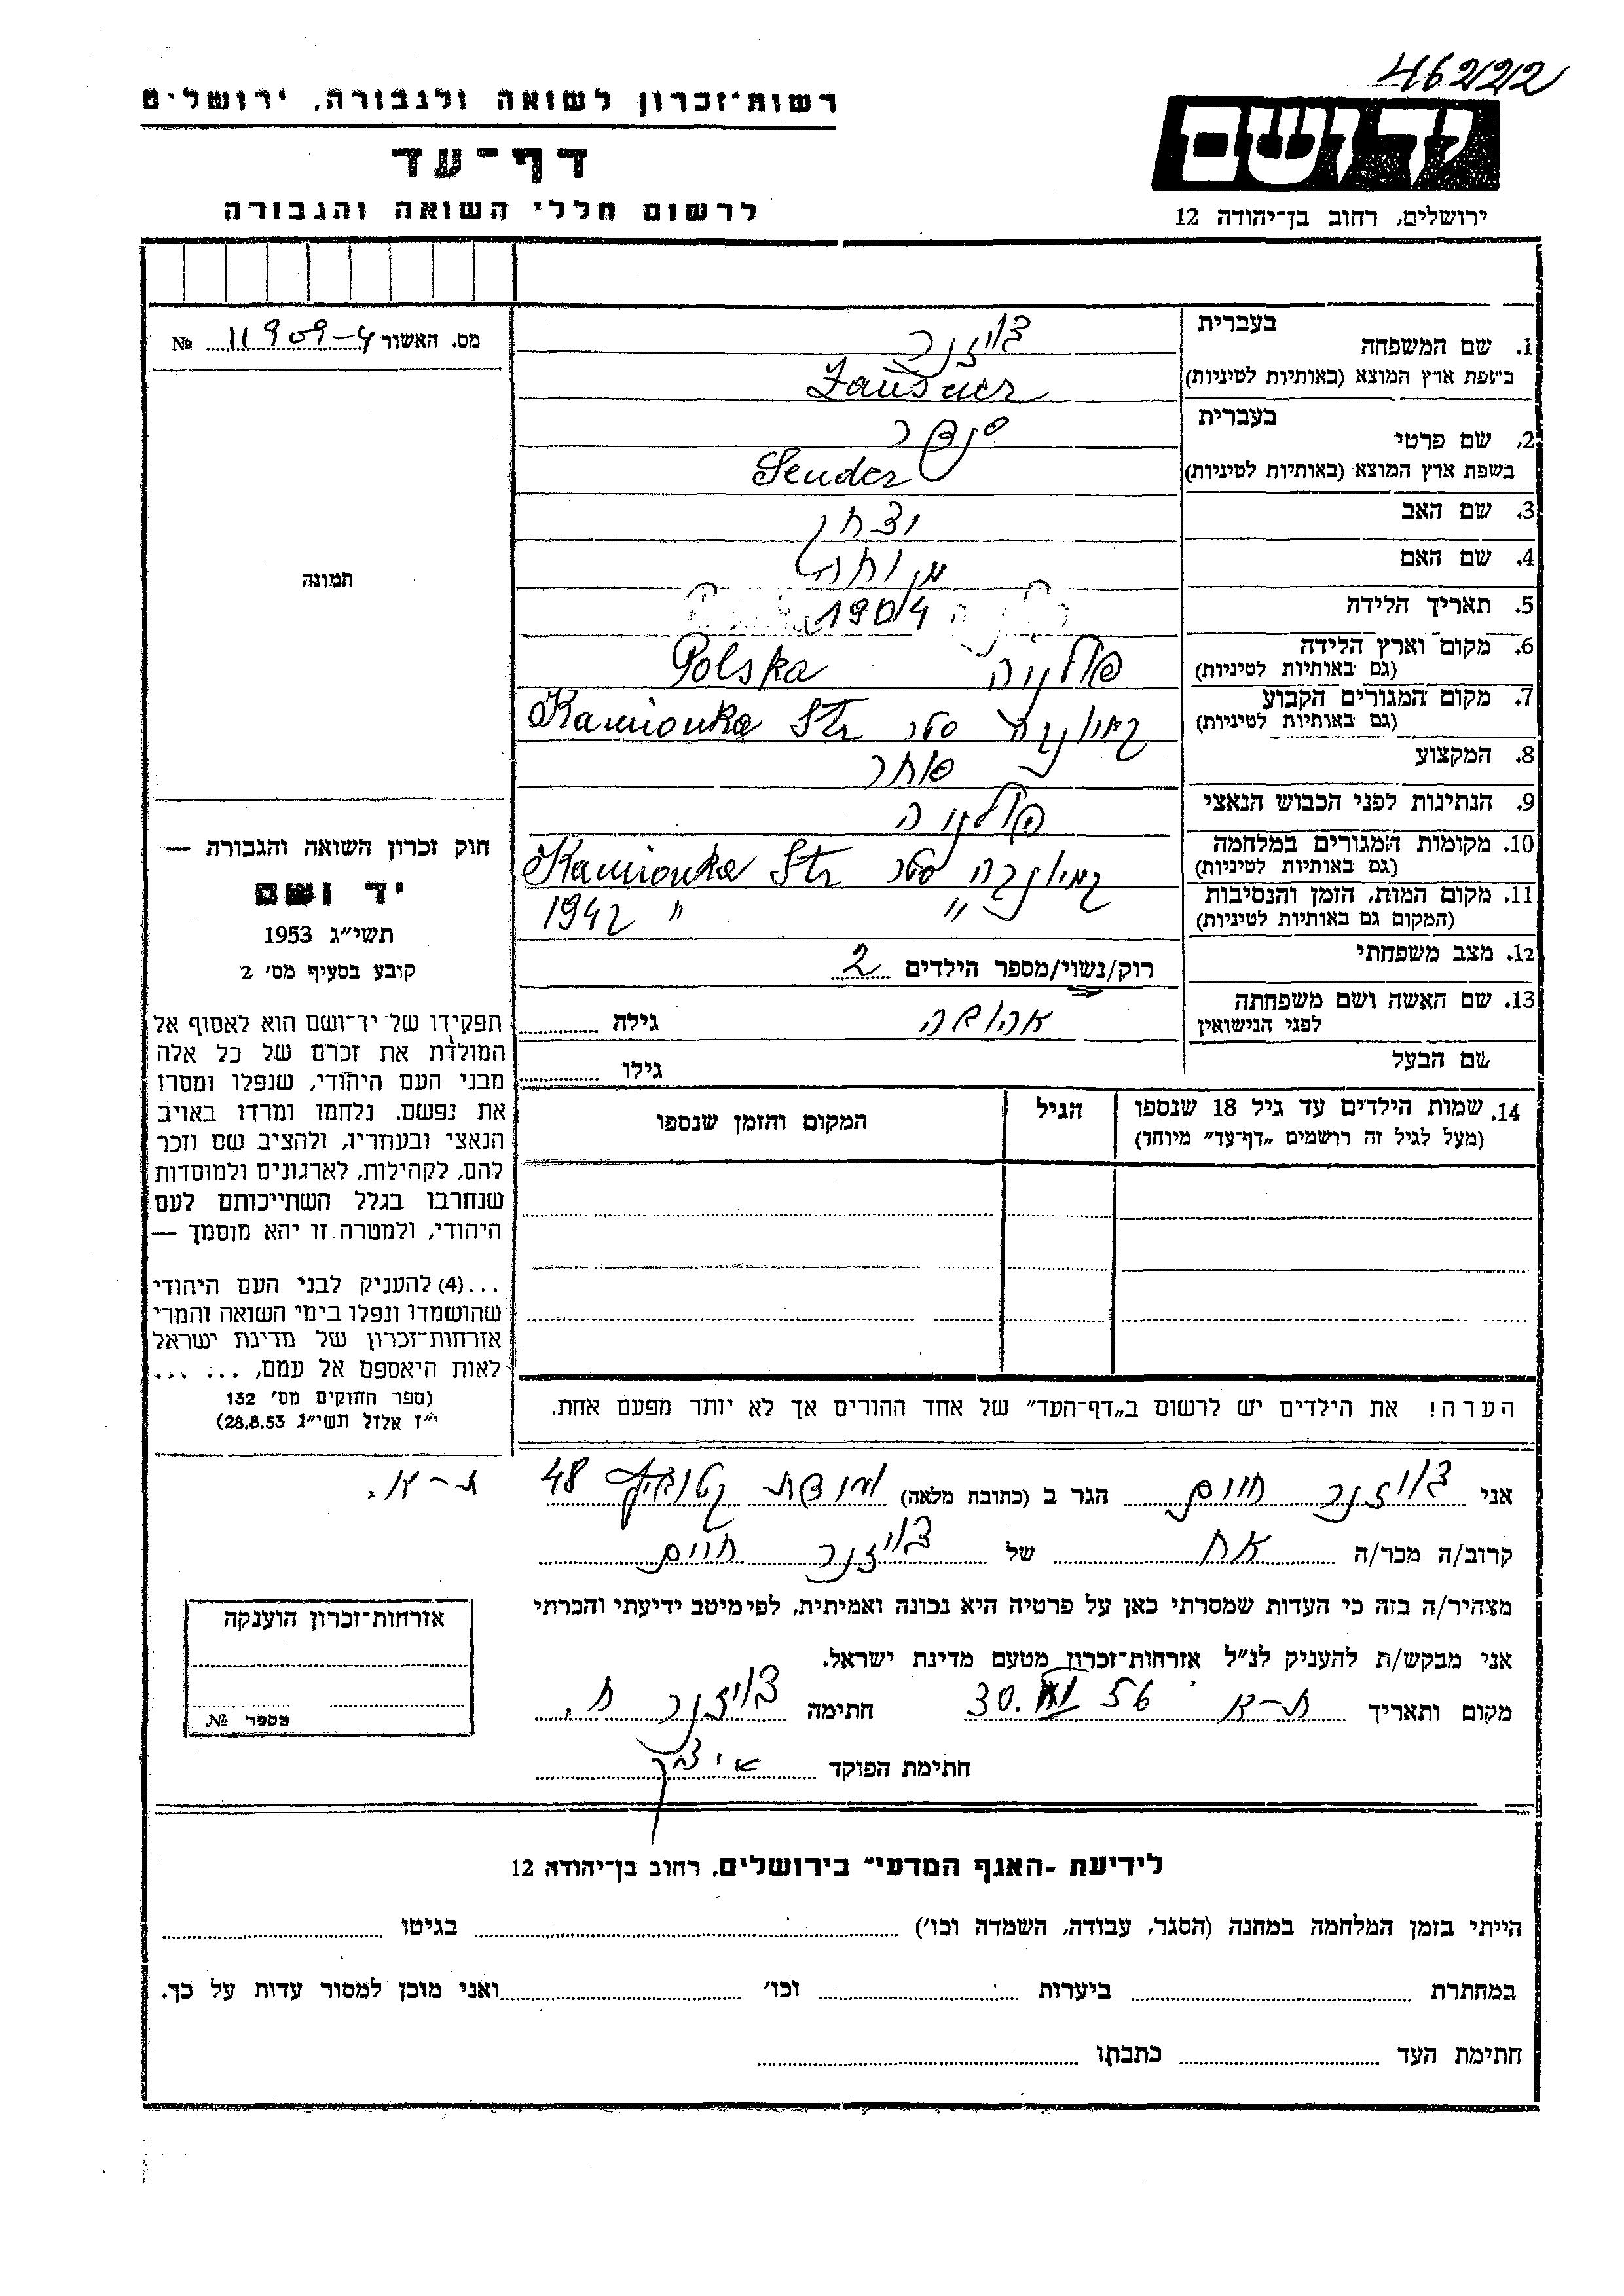 46222
רשות־זכרון לשואה ולגבורה, ירושלים
דף־עד
לרשום חללי השואה והגבורה
יד ושם
ירושלים, רחוב בן־יהודה 12
מס. האשור 11909-4 №
תמונה
בעברית
1. שם המשפחה
צויזנר
בשפת ארץ המוצא (באותיות לטיניות)
בעברית
2. שם פרטי
סנדר
בשפת ארץ המוצא (באותיות לטיניות) Sender
3. שם האב יצחק
4. שם האם
5. תאריך הלידה 1904
6. מקום וארץ הלידה פולניה Polska
(גם באותיות לטיניות)
7. מקום המגורים הקבוע קמיונקה סטר Kamionka Str
(גם באותיות לטיניות)
8. המקצוע סוחר
9. הנתינות לפני הכבוש הנאצי פולניה
10. מקומות המגורים במלחמה קמיונקה סטר Kamionka Str
(גם באותיות לטיניות)
11. מקום המות, הזמן והנסיבות " " 1942
(המקום גם באותיות לטיניות)
12. מצב משפחתי רוק/נשוי/מספר הילדים 2
13. שם האשה ושם משפחתה
לפני הנישואין
גילה
שם הבעל גילו
14. שמות הילדים עד גיל 18 שנספו
(מעל לגיל זה רושמים „דף־עד” מיוחד)
הגיל
המקום והזמן שנספו
חוק זכרון השואה והגבורה —
יד ושם
תשי״ג 1953
קובע בסעיף מס׳ 2
תפקידו של יד־ושם הוא לאסוף אל
המולדת את זכרם של כל אלה
מבני העם היהודי, שנפלו ומסרו
את נפשם, נלחמו ומרדו באויב
הנאצי ובעוזריו, ולהציב שם וזכר
להם, לקהילות, לארגונים ולמוסדות
שנחרבו בגלל השתייכותם לעם
היהודי, ולמטרה זו יהא מוסמך —
...(4) להעניק לבני העם היהודי
שהושמדו ונפלו בימי השואה והמרי
אזרחות־זכרון של מדינת ישראל
לאות היאספם אל עמם, ... ...
(ספר החוקים מס׳ 132
י״ז אלול תשי״ג 28.8.53)
הערה! את הילדים יש לרשום ב„דף־העד” של אחד ההורים אך לא יותר מפעם אחת.
אני צויזנר חיים הגר ב (כתובת מלאה) 48 ת-א.
קרוב/ה מכר/ה אח של צויזנר חיים
מצהיר/ה בזה כי העדות שמסרתי כאן על פרטיה היא נכונה ואמיתית, לפי מיטב ידיעתי והכרתי
אני מבקש/ת להעניק לנ״ל אזרחות־זכרון מטעם מדינת ישראל.
מקום ותאריך ת-א 56 30. חתימה צויזנר ח.
חתימת הפוקד
אזרחות־זכרון הוענקה
מספר №
לידיעת ״האגף המדעי״ בירושלים, רחוב בן־יהודה 12
הייתי בזמן המלחמה במחנה (הסגר, עבודה, השמדה וכו׳) בגיטו
במחתרת ביערות וכו׳ ואני מוכן למסור עדות על כך.
חתימת העד כתבתו